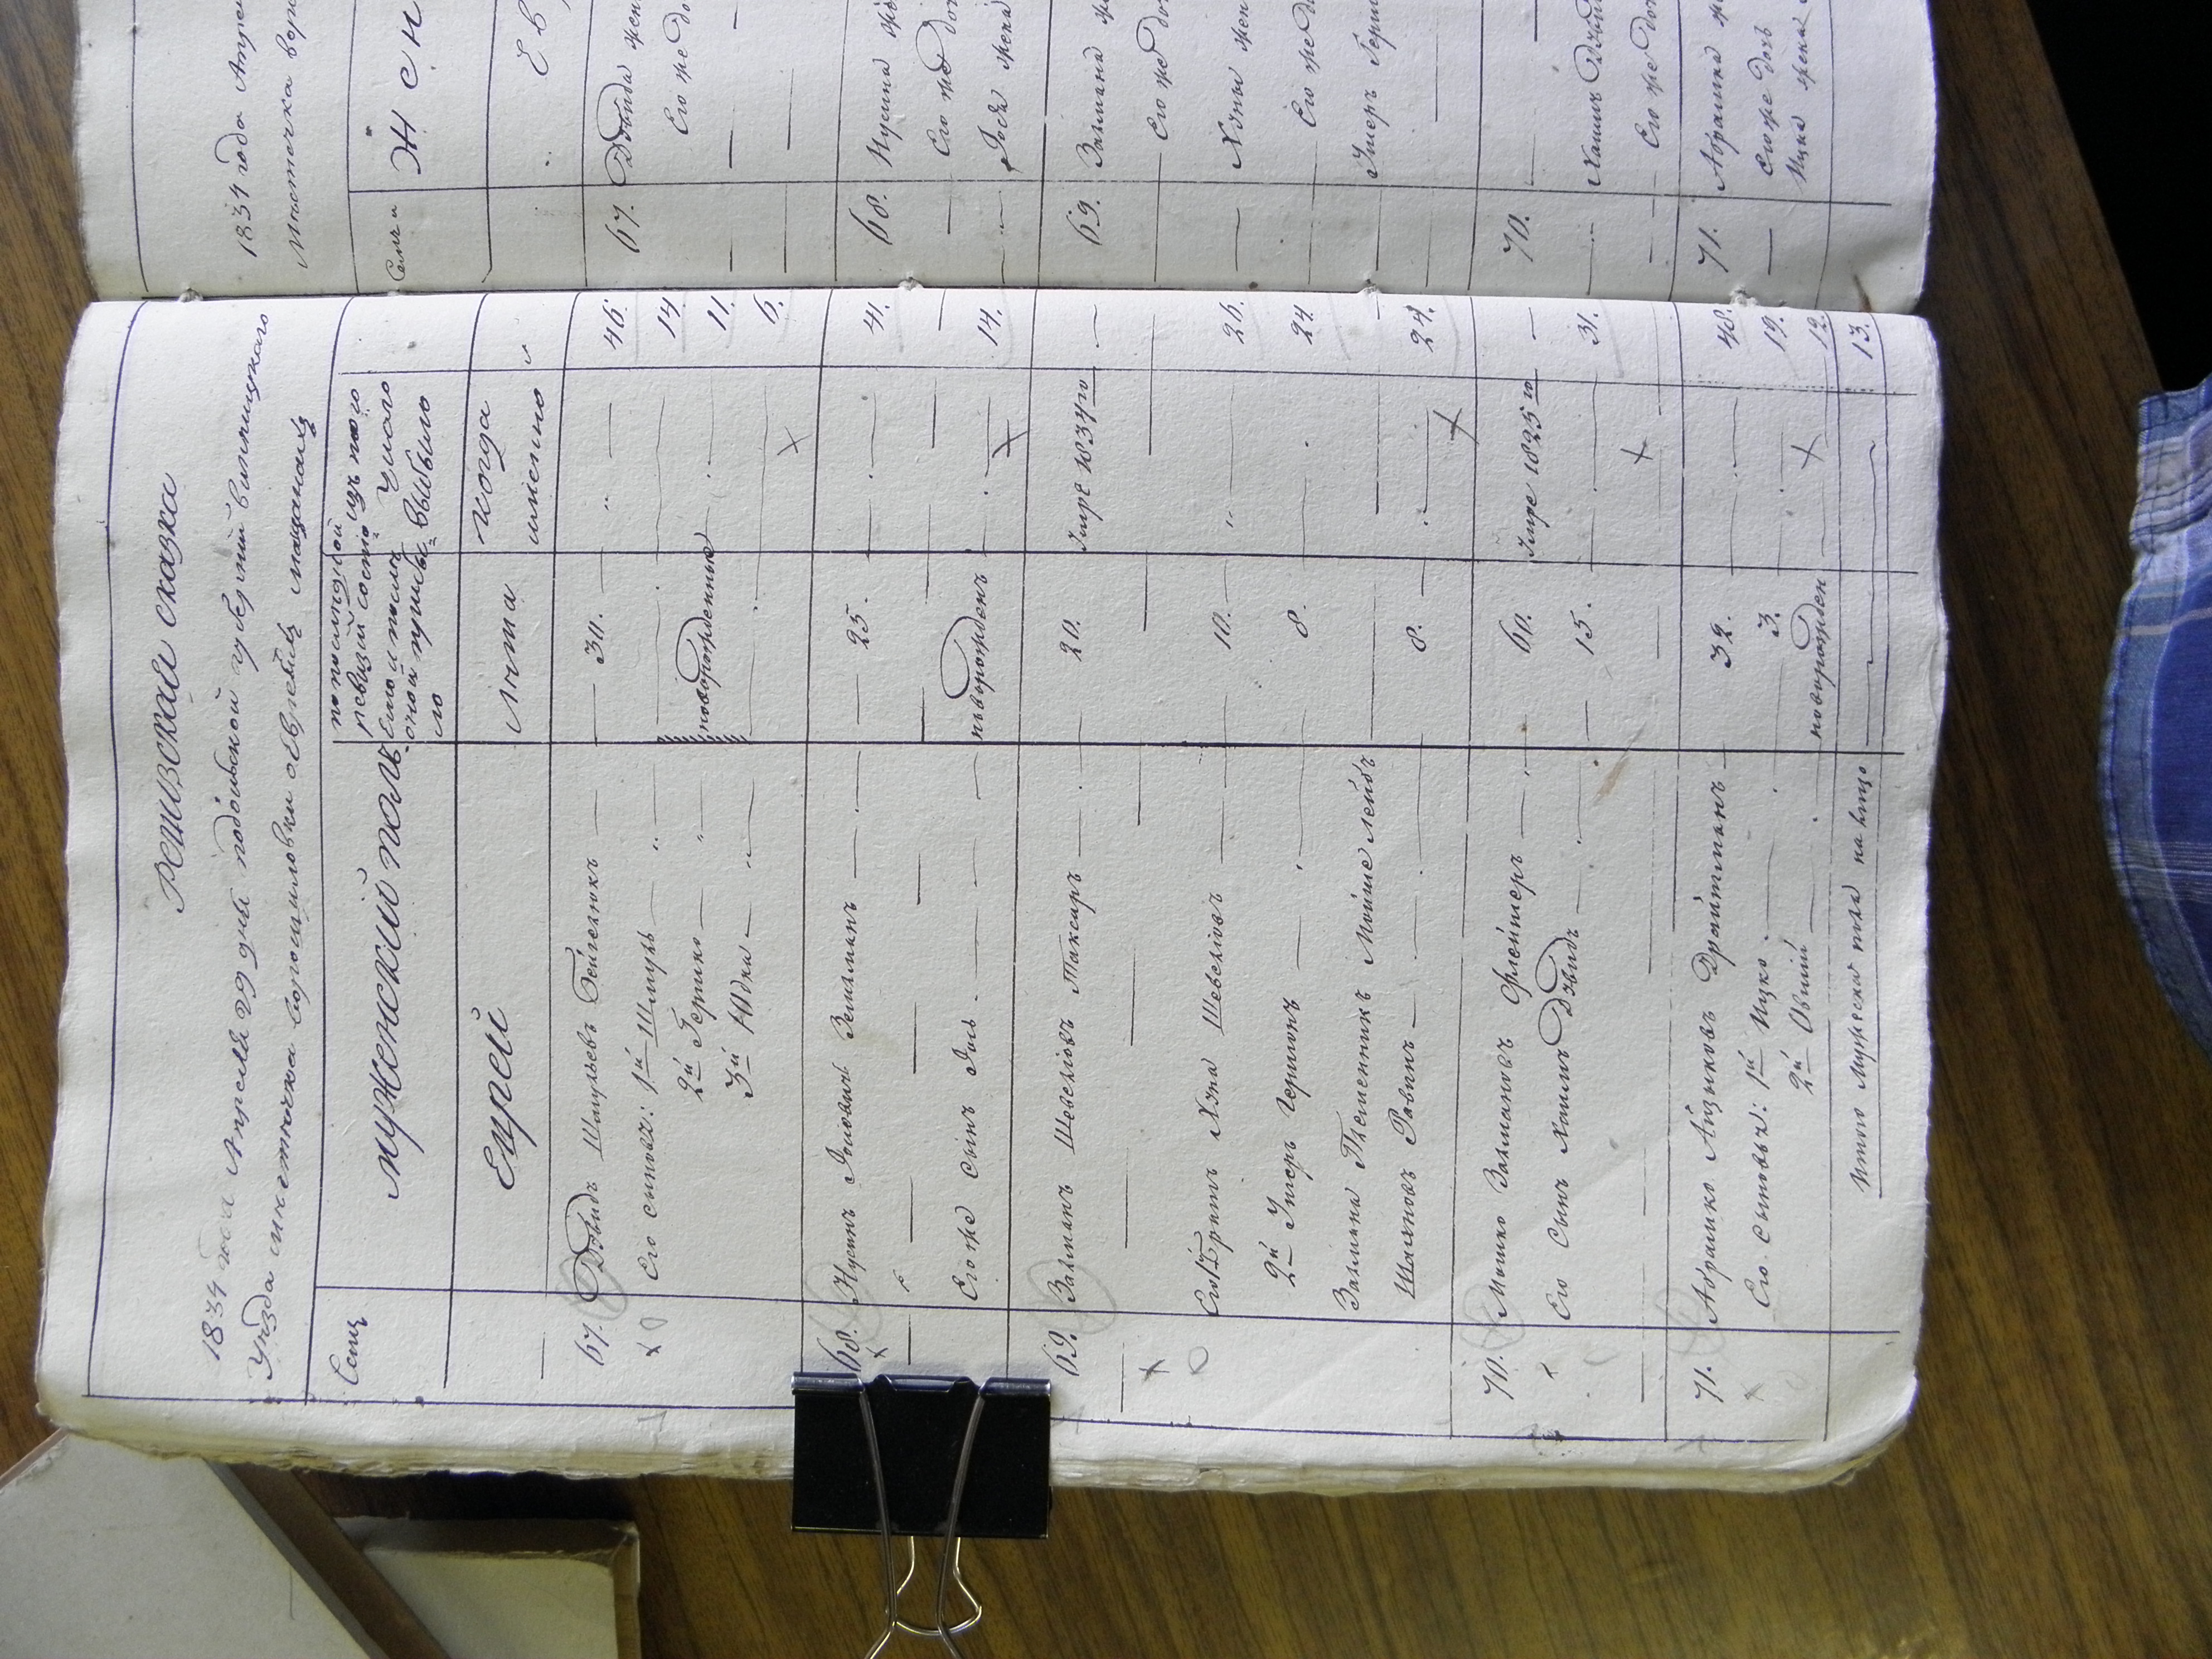 Ревизская сказка
1834 года Апреля 29 дня подольской губернии винницкаго
Уезда местечка ворошиловки о евреяхъ мещанахъ
Семьи
мужеский полъ
по последней ревизии состояло и после оной прибыло
изъ того числа выбыло
Евреи
Лета
когда именно
67. Довидъ Шмульевъ Бейгелюкъ 30. 46.
Его сыновья: 1й Шмуль 14
2й Гершко новорожденные 11.
3й Юдка 6.
68. Нусинъ Іосiовичъ Зельманъ 25. 41.
Его же сынъ Іось новорожденъ 14.
69. Залманъ Шевелiовъ Таксаръ 20. Умре 1834го
Его братъ Хуна Шевелiовъ 10. 26.
2й Умеръ Гершонъ 8. 24.
Залмана Племенникъ Мойше Лейбъ
Шмулiовъ Рабинъ 8. 24.
70. Мошко Залмановъ Флейшеръ 60. Умре 1825го
Его сынъ Хаимъ Довидъ 15. 31.
71. Абрамко Айзиковъ Дрейтманъ 32. 48.
Его сыновья: 1й Ицко 3. 19.
2й Овшiй новорожден 12.
Итого мужеска пола на лицо 13.
1834 года Апре
местечка воро
Семьи
Жен
Ев
67. Довида жен
Его же до
68. Нусина же
Его же до
Іося жена
69. Залмана ж
Его же до
Хуны жен
Его же до
Умеръ Герш
70.
Хаимъ Довид
Его же доч
71. Абрамка ж
Его же дочь
Ицка жена